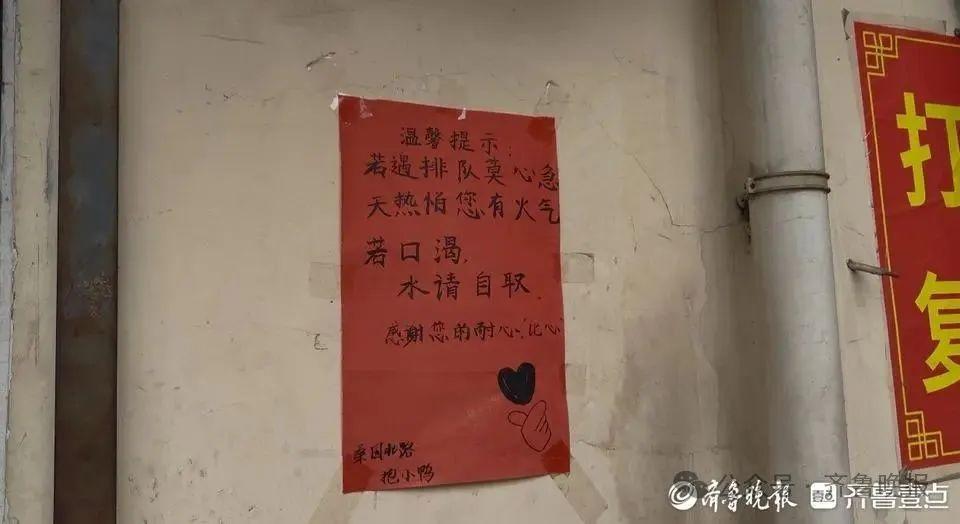 温馨提示:
若遇排队莫心急
天热怕您有火气
若口渴,
水请自取.
感谢您的耐心(比心)
桑园北路
抱小鸭
打
复
公众号·齐鲁晚报
齐鲁晚报 齐鲁壹点